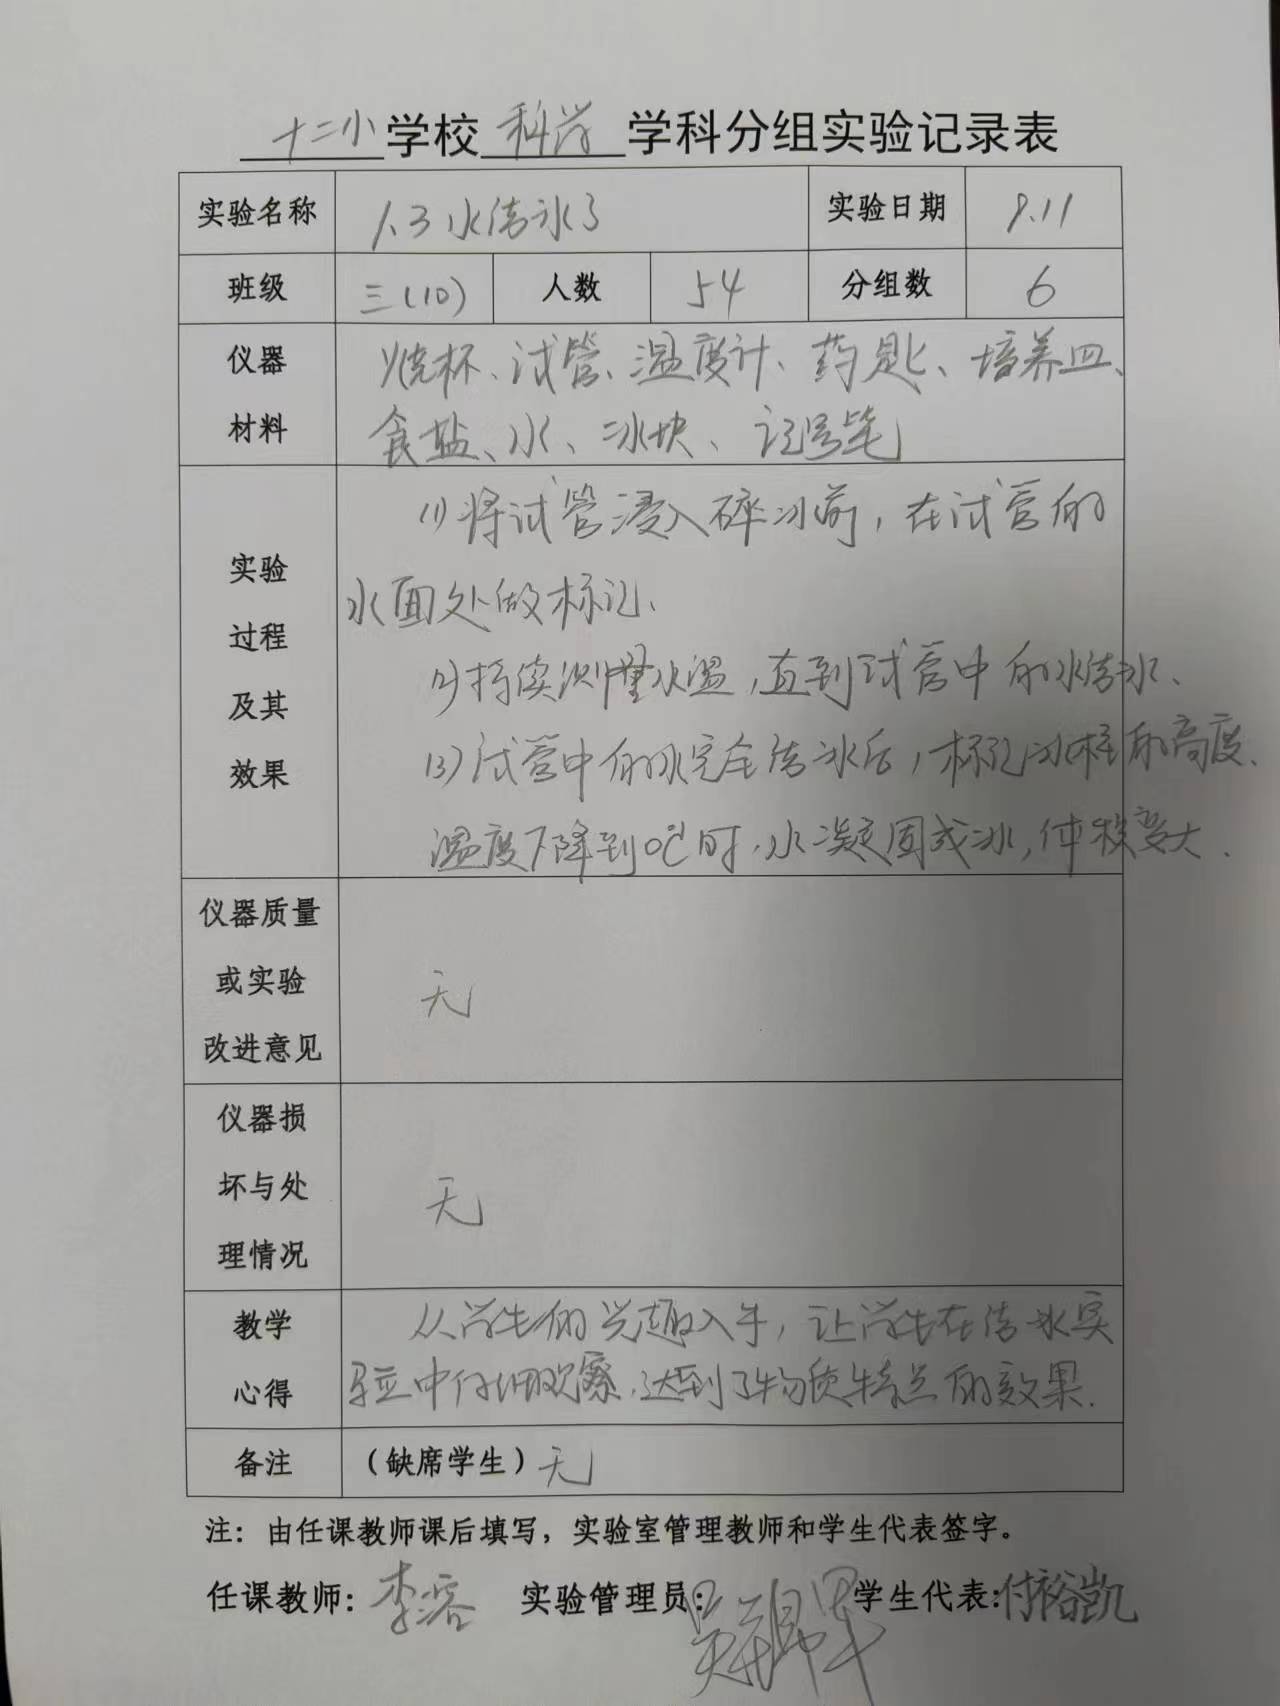 十二小学校科学学科分组实验记录表
实验名称 1.3水结冰了 实验日期 9.11
班级 三(10) 人数 54 分组数 6
仪器
材料
烧杯、试管、温度计、药匙、培养皿、
食盐、水、冰块、记号笔
实验
过程
及其
效果
(1)将试管浸入碎冰前,在试管的
水面处做标记、
(2)持续测量水温,直到试管中的水结冰、
(3)试管中的水完全结冰后,标记冰柱的高度.
温度下降到0℃时,水凝固成冰,体积变大.
仪器质量
或实验
改进意见
无
仪器损
坏与处
理情况
无
教学
心得
从学生的兴趣入手,让学生在结冰实
验中仔细观察,达到了物质特点的效果.
备注 (缺席学生)无
注:由任课教师课后填写,实验室管理教师和学生代表签字。
任课教师:李容 实验管理员: 学生代表:付裕凯